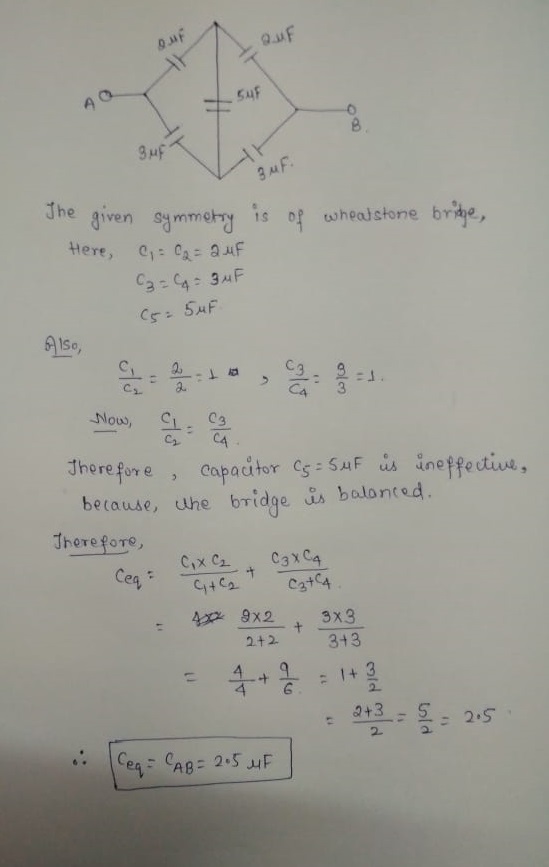 2μF 2μF
A 5μF B.
3μF 3μF.
The given symmetry is of wheatstone bridge,
Here, C₁ = C₂ = 2μF
C₃ = C₄ = 3μF
C₅ = 5μF
Also,
C₁/C₂ = 2/2 = 1 , C₃/C₄ = 3/3 = 1.
Now, C₁/C₂ = C₃/C₄.
Therefore, Capacitor C₅ = 5μF is ineffective,
because, the bridge is balanced.
Therefore,
Ceq = C₁×C₂/C₁+C₂ + C₃×C₄/C₃+C₄.
= 2×2/2+2 + 3×3/3+3
= 4/4 + 9/6. = 1 + 3/2
= 2+3/2 = 5/2 = 2.5
∴ Ceq = CAB = 2.5 μF